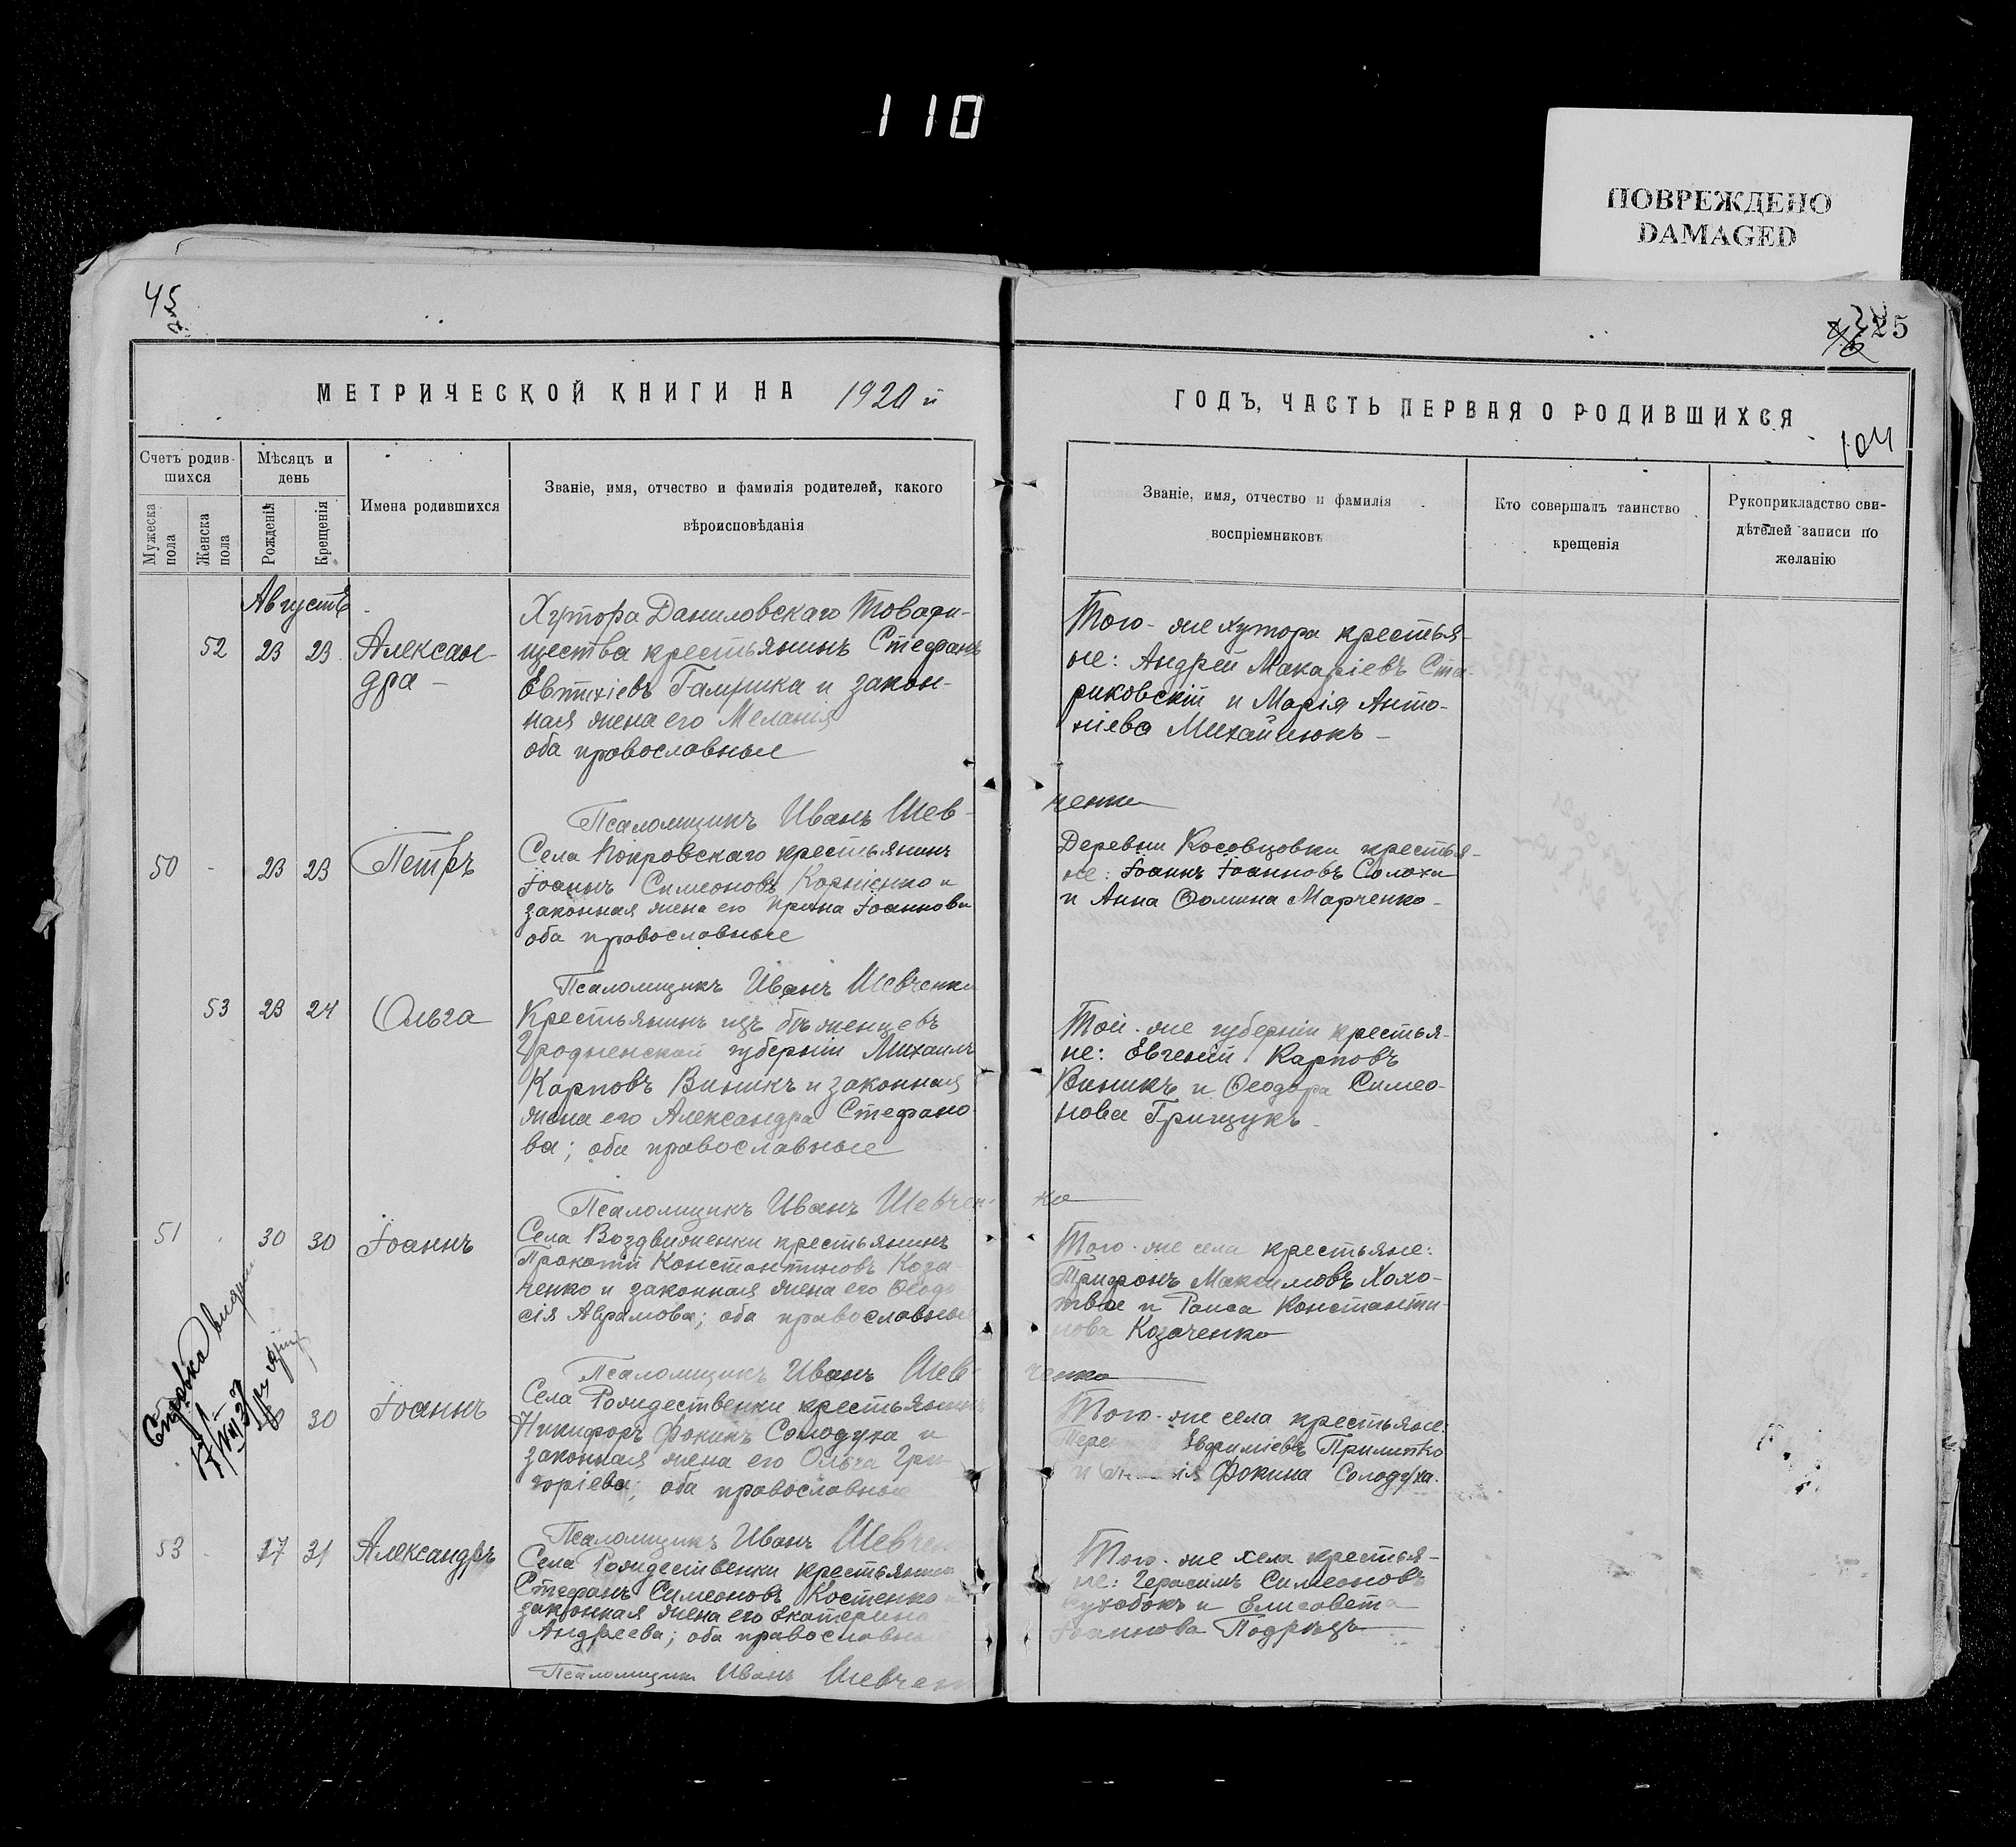 110
ПОВРЕЖДЕНО
DAMAGED
45
225
МЕТРИЧЕСКОЙ КНИГИ НА 1920 й
ГОДЪ, ЧАСТЬ ПЕРВАЯ О РОДИВШИХСЯ
104
Счетъ родив-
шихся
Мужеска
пола
Женска
пола
Мѣсяцъ и
день
Рожденія
Крещенія
Имена родившихся
Званіе, имя, отчество и фамилія родителей, какого
вѣроисповѣданія
Званіе, имя, отчество и фамилія
воспріемниковъ
Кто совершалъ таинство
крещенія
Рукоприкладство сви-
дѣтелей записи по
желанію
Августъ
52 23 23 Алексан-
дра -
Хутора Даниловскаго Товари-
щества крестьянинъ Стефанъ
Евтихіевъ Гамушка и закон-
ная жена его Меланія
оба православные
Того-же хутора крестья-
не: Андрей Макаріевъ Ста-
риковскій и Марія Анто-
ніева Михайлюкъ -
Псаломщикъ Иванъ Шев-
ченко
50 - 23 23 Петръ
Села Покровскаго крестьянинъ
Іоаннъ Симеоновъ Корніенко и
законная жена его Ирина Іоаннова
оба православные
Деревни Косовцовки крестья-
не: Іоаннъ Іоанновъ Солоха
и Анна Фомина Марченко -
Псаломщикъ Иванъ Шевченко
53 23 24 Ольга
Крестьянинъ изъ бѣженцевъ
Гродненской губерніи Михаилъ
Карповъ Виникъ и законная
жена его Александра Стефано-
ва; оба православные
Той-же губерніи крестья-
не: Евгеній Карповъ
Виникъ и Ѳеодора Симео-
нова Грищукъ -
Псаломщикъ Иванъ Шевчен-
ко
51 30 30 Іоаннъ
Села Воздвиженки крестьянинъ
Прокопій Константиновъ Коза-
ченко и законная жена его Ѳеодо
сія Аврамова; оба православные
Того-же села крестьяне:
Трифонъ Максимовъ Холо-
и Раиса Константи-
нова Козаченко
Псаломщикъ Иванъ Шев-
ченко
Справка
30 Іоаннъ
Села Рождественки крестьянинъ
Никифоръ Фокинъ Солодуха и
законная жена его Ольга Гри
горіева; оба православные
Того-же села крестьяне:
Евфиміевъ Прилипко
и Фокина Солодуха.
Псаломщикъ Иванъ Шевчен
53 - 17 31 Александръ
Села Рождественки крестьянинъ
Стефанъ Симеоновъ Костенко и
законная жена его Екатерина
Андреева; оба православные
Того-же села крестья-
не: Герасимъ Симеоновъ
Сухобокъ и Елисавета
Іоаннова Подрѣзъ
Псаломщикъ Иванъ Шевчен